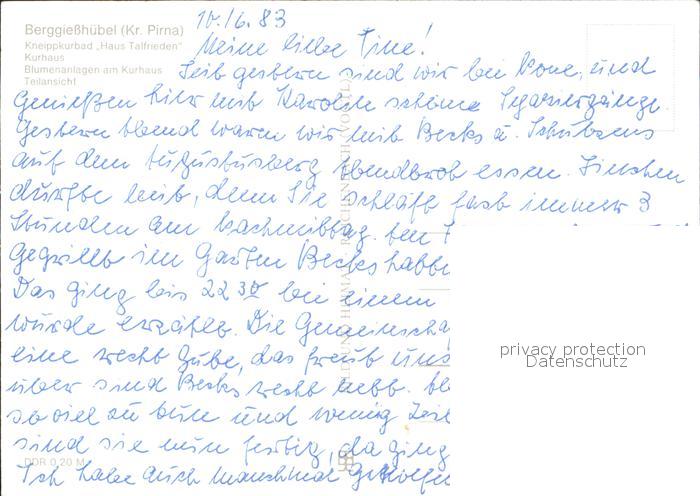 Berggießhübel (Kr. Pirna)
Kneippkurbad „Haus Talfrieden"
Kurhaus
Blumenanlagen am Kurhaus
Teilansicht
10./6.83
Meine liebe Tine!
Seit gestern sind wir bei und
Genießen hier mit Karolin schöne Spaziergänge.
Gestern Abend waren wir mit Becks u. Schulzens
auf dem Augustusberg Abendbrot essen. Linchen
durfte mit, denn Sie schläft fast immer 3
Stunden am Nachmittag.
Gegrillt im Garten Becks
Das ging bis 22 30 bei einem
wurde erzählt. Die Gemeinscha
eine recht Gute, das freut uns
über sind Becks recht nett.
so viel zu tun und wenig Zeit
sind sie nun fertig, da ging
Ich habe auch manchmal Geholfe
DDR 0,20 M
BILD UND HEIMAT REICHENBACH (VOGTL)
privacy protection
Datenschutz